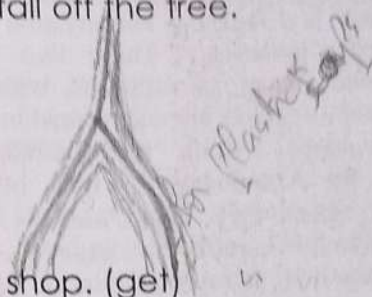 fall off the tree.
for Plastick
shop. (get)